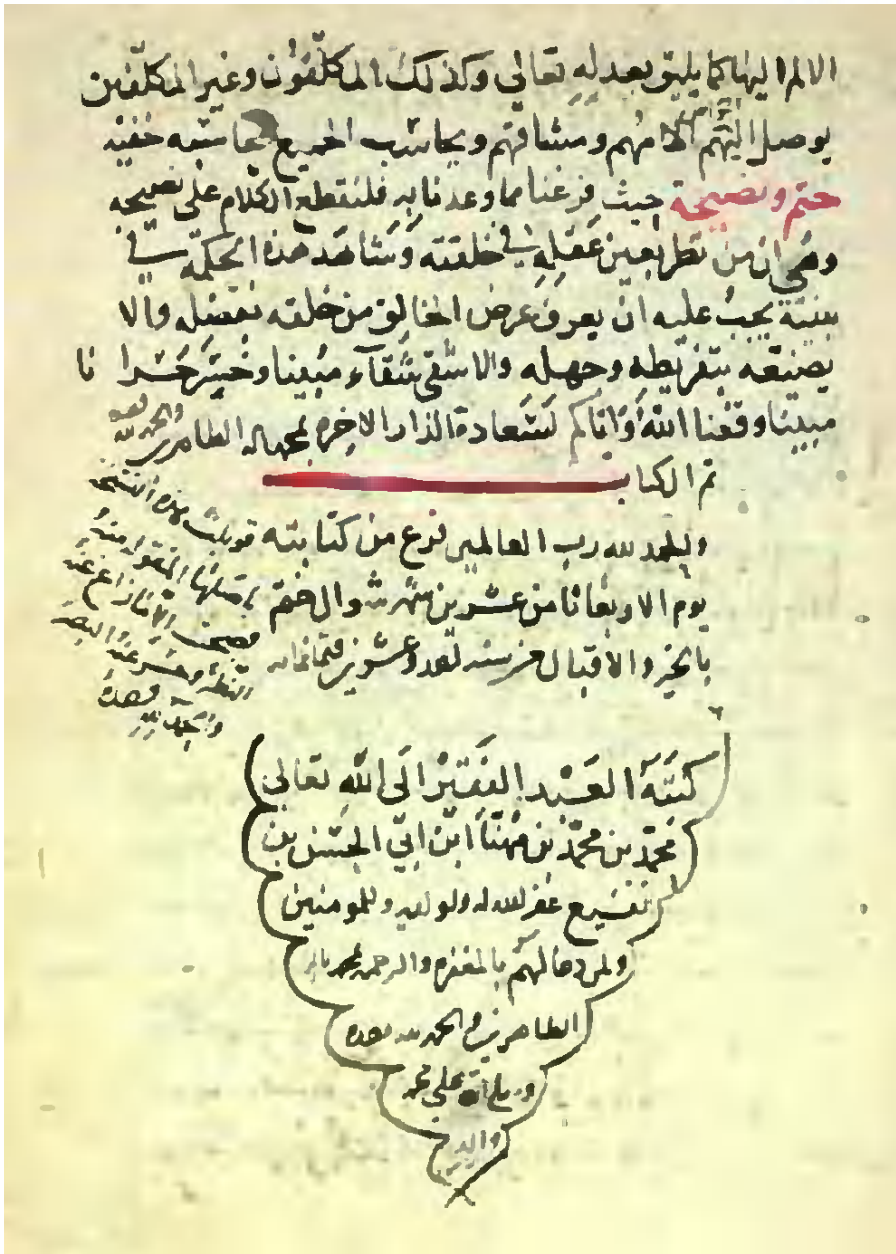 الالم اليها كما يليق بعدله تعالى وكذلك المكلفون وغير المكلفين
يوصل اليهم الامهم ومشاقهم ويحاسب الجميع محاسبه خفيه
ختم ونصيحة حيث فرغنا مما وعدنا به فلنقطع الكلام على نصيحه
وهي ان من نظر بعين عقله في خلقته وشاهد هذه الحكمة في
بنيته يجب عليه ان يعرف غرض الخالق من خلقه بفضله والا
يضيعه بتفريطه وجهله والا شقى شقآء مبينا وخسر خسرا نا
مبينا وفقنا الله واياكم لسعادة الدار الاخره بمحمد واله الطاهرين
والحمد لله
تم الكتاب
والحمد لله رب العالمين فرغ من كتابته
يوم الاربعا ثامن عشرين شهر شوال ختم
بالخير والاقبال من سنه وعشرين وثمانمايه
قوبلت هذه النسخة
باصلها المنقوله منه
فصحت الا ما زاغ عنه
النظر وحسر عنه البصر
والحمد لله وحده
كتبه العبد الفقير الى الله تعالى
محمد بن محمد بن مهنا ابن ابي الحسن بن
غفر الله له ولوالديه وللمومنين
ولمن دعا لهم بالمغفره والرحمه بمحمد واله
الطاهرين والحمد لله وحده
وصلى الله على محمد
واله